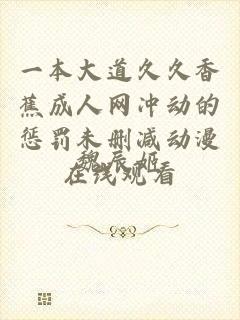 一本大道久久香
蕉成人网冲动的
惩罚未删减动漫
在线观看
魏辰姬